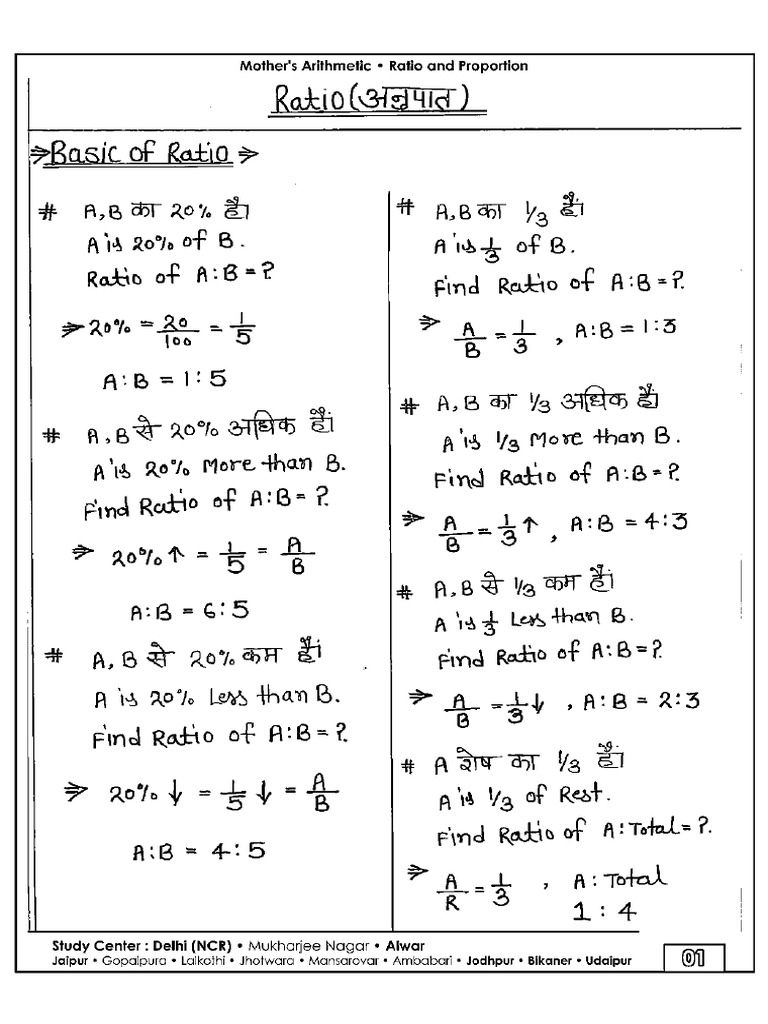 Mother's Arithmetic • Ratio and Proportion
Ratio (अनुपात)
⇒ Basic of Ratio ⇒
# A, B का 20% है।
A is 20% of B.
Ratio of A:B = ?
⇒ 20% = 20/100 = 1/5
A:B = 1:5
# A, B से 20% अधिक है।
A is 20% More than B.
Find Ratio of A:B = ?
⇒ 20% ↑ = 1/5 = A/B
A:B = 6:5
# A, B से 20% कम है।
A is 20% Less than B.
Find Ratio of A:B = ?
⇒ 20% ↓ = 1/5 ↓ = A/B
A:B = 4:5
# A, B का 1/3 है।
A is 1/3 of B.
Find Ratio of A:B = ?
⇒ A/B = 1/3 , A:B = 1:3
# A, B का 1/3 अधिक है।
A is 1/3 More than B.
Find Ratio of A:B = ?
⇒ A/B = 1/3 ↑ , A:B = 4:3
# A, B से 1/3 कम है।
A is 1/3 Less than B.
Find Ratio of A:B = ?
⇒ A/B = 1/3 ↓ , A:B = 2:3
# A शेष का 1/3 है।
A is 1/3 of Rest.
Find Ratio of A:Total = ?
⇒ A/R = 1/3 , A:Total
1 : 4
Study Center : Delhi (NCR) • Mukharjee Nagar • Alwar
Jaipur • Gopalpura • Lalkothi • Jhotwara • Mansarovar • Ambabari • Jodhpur • Bikaner • Udaipur
01